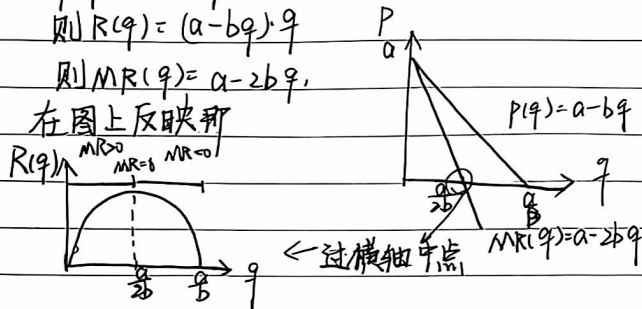 则 R(q) = (a-bq)·q
则 MR(q) = a-2bq,
在图上反映即
R(q)
MR>0
MR=0
MR<0
a/2b
a/b
q
P
a
P(q)=a-bq
q
a/2b
a/b
MR(q)=a-2bq
←过横轴中点